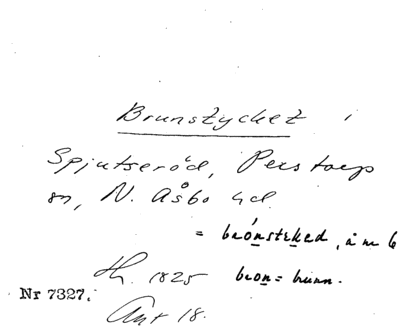 Brunstycket i
Spjutseröd, Perstorps
sn, N. Åsbo hd
= beónsteked, å m 6
Lh. 1825 beon = brunn.
Nr 7327.
Ant 18.